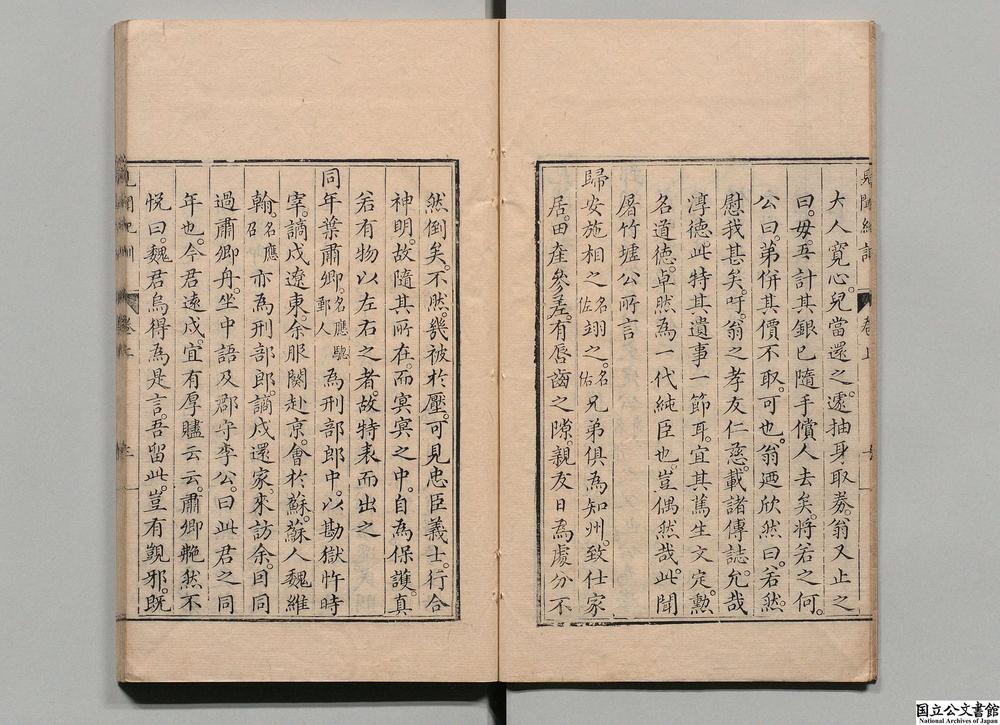 大人寬心。兒當還之。遽抽身取券。翁又止之
曰。毋。吾計其銀已隨手償人去矣。將若之何。
公曰。弟併其價不取。可也。翁迺欣然曰。若然。
慰我甚矣。吁。翁之孝友仁慈。載諸傳誌。允哉
淳德。此特其遺事一節耳。宜其篤生文定。勲
名道德。卓然為一代純臣也。豈偶然哉。此聞
屠竹墟公所言
歸安施相之名佐翊之名佑兄弟俱為知州。致仕家
居。田產參差。有唇齒之隙。親友日為處分不
然倒矣。不然。幾被於壓。可見忠臣義士。行合
神明。故隨其所在。而冥冥之中。自為保護。真
若有物以左右之者。故特表而出之
同年葉肅卿名應驄鄞人為刑部郎中。以勘獄忤時
宰。謫戍遼東。余服闋赴京。會於蘇。蘇人魏維
翰名應召亦為刑部郎。謫戍還家。來訪余。因同
過肅卿舟。坐中語及郡守李公。曰此君之同
年也。今君遠戍。宜有厚贐云云。肅卿艴然不
悅曰。魏君烏得為是言。吾留此。豈有覬邪。既
国立公文書館
National Archives of Japan